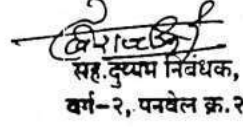 सह.दुय्यम निबंधक,
वर्ग-२, पनवेल क्र.२